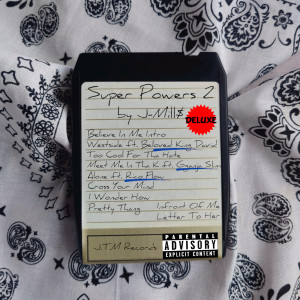 Super Powers 2
by J-Mill$
DELUXE
Believe In Me Intro
Westside ft. Beloved King David
Too Cool For Tha Hate
Meet Me In Tha K ft.
Alone ft. Rico Flow
Cross Your Mind
I Wonder How
Pretty Thang
Infront Of Me
Letter To Her
J.T.M Records
PARENTAL
ADVISORY
EXPLICIT CONTENT